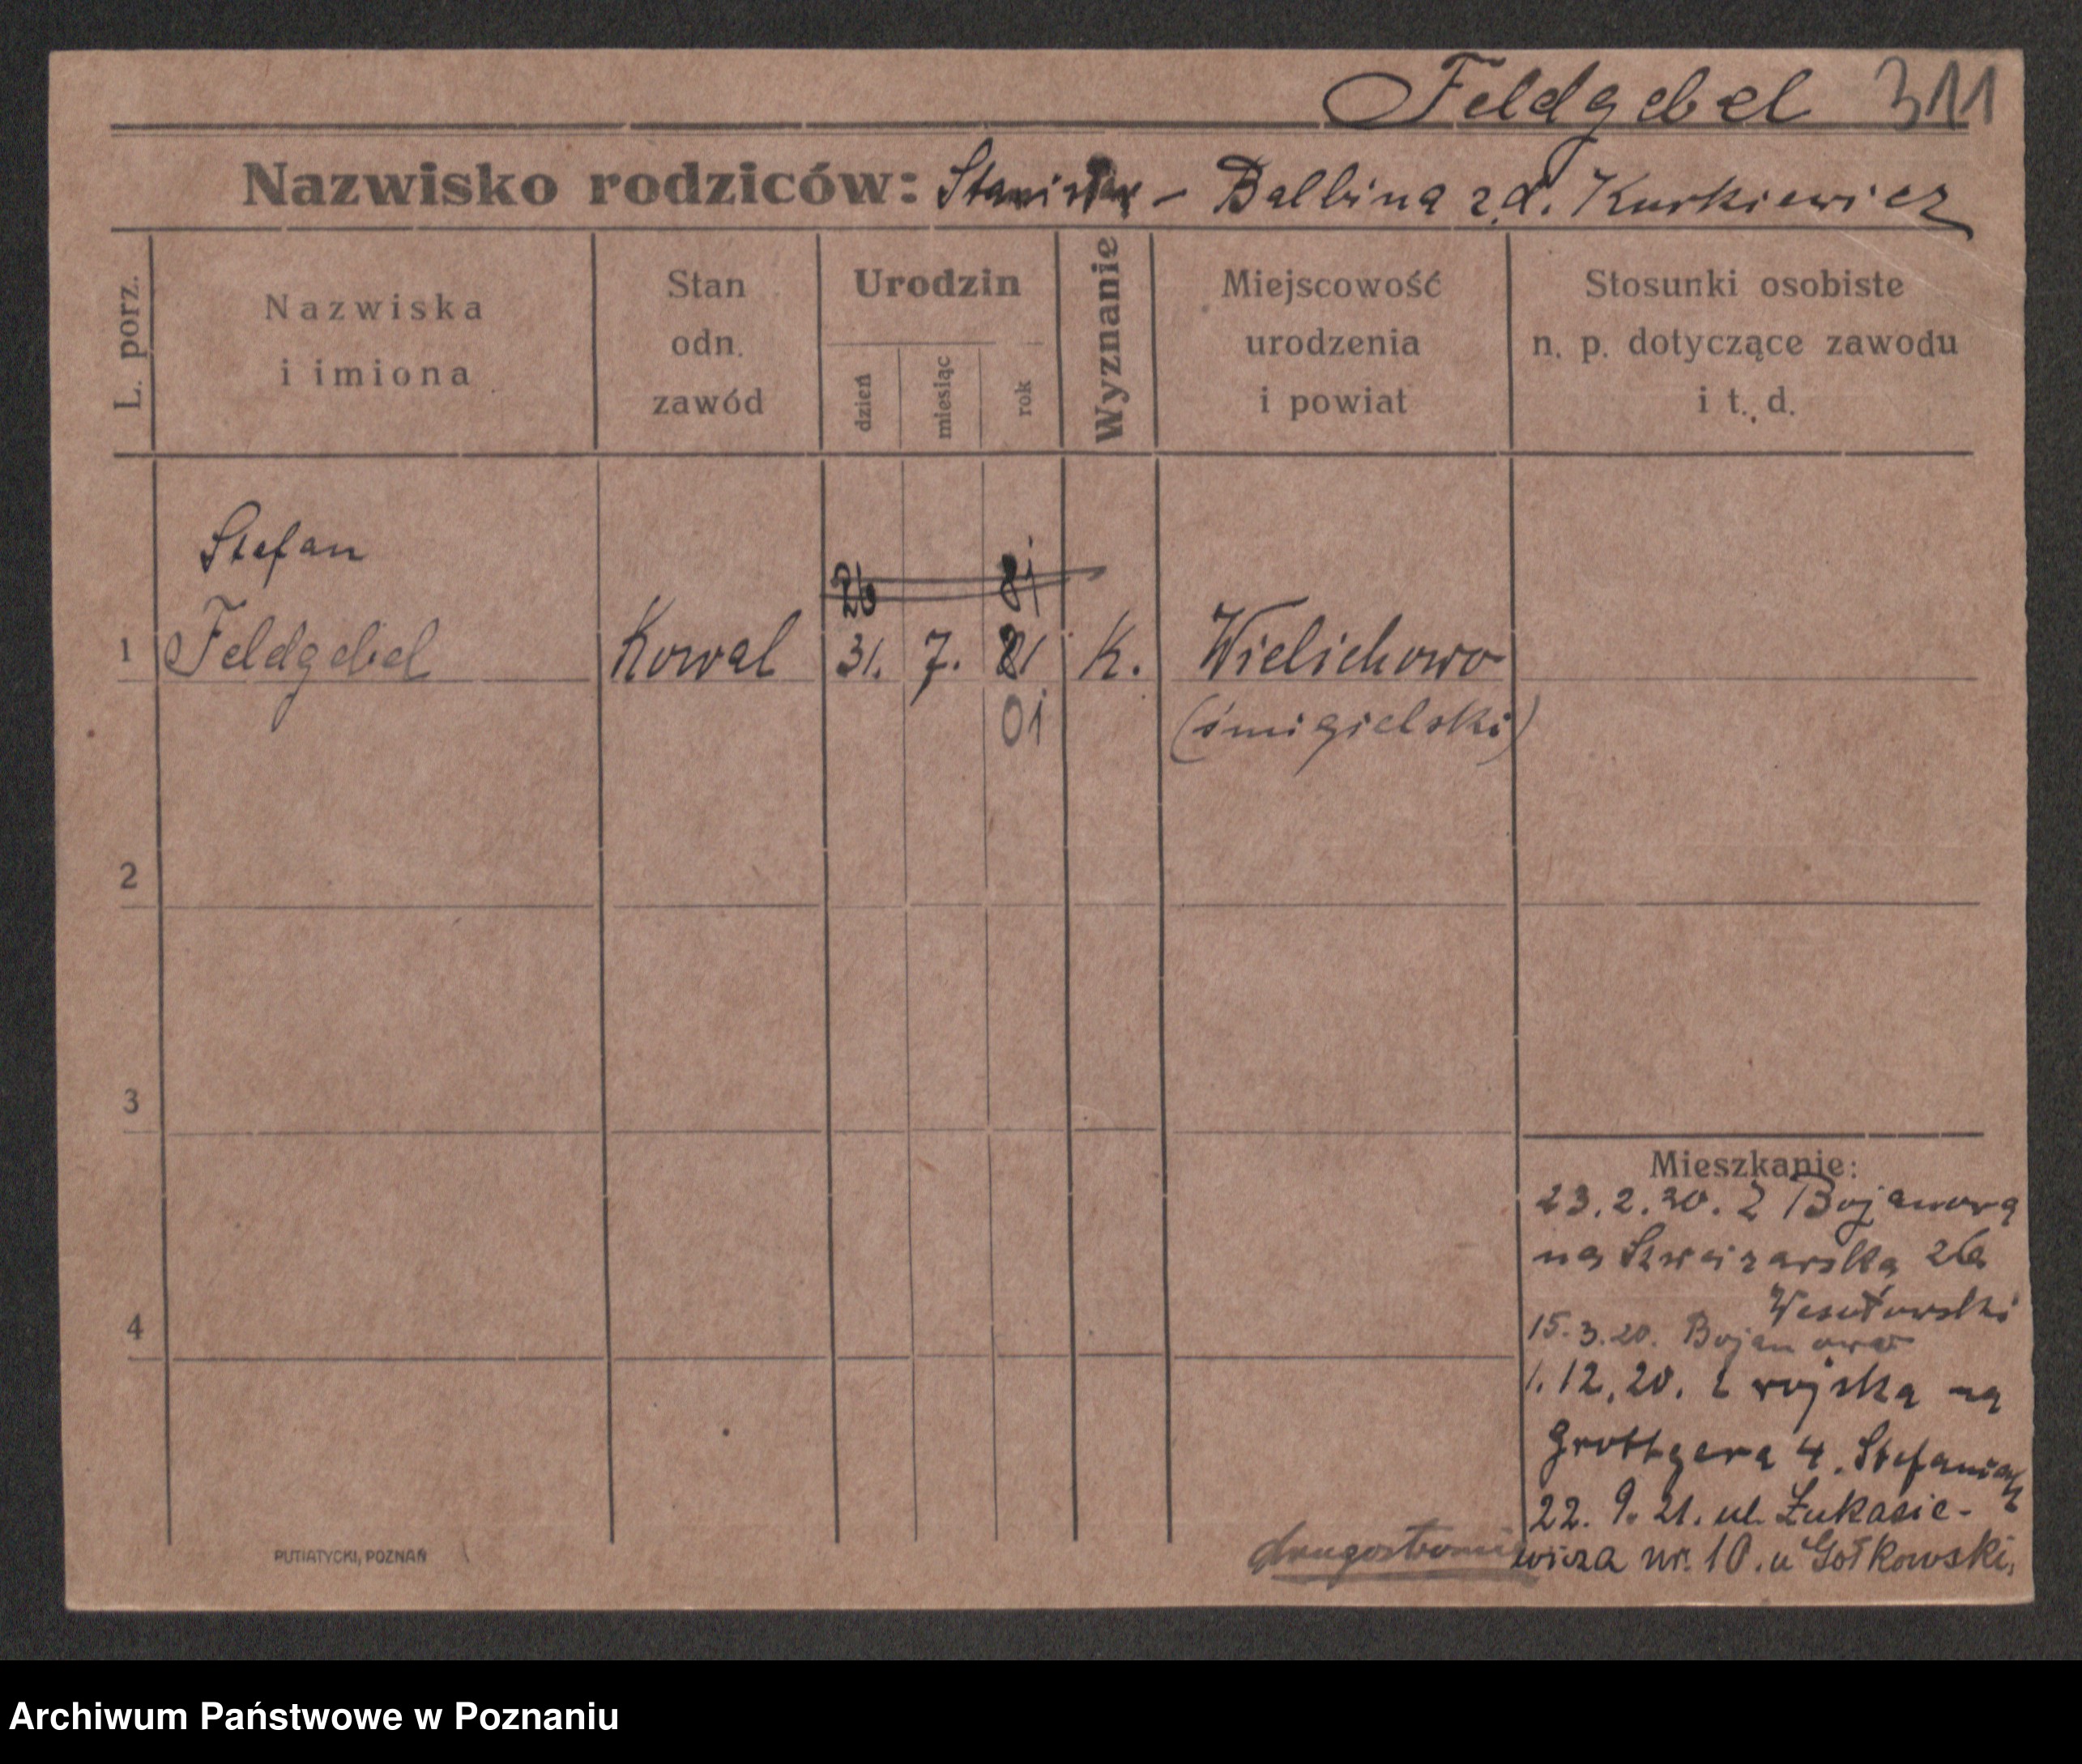 Feldgebel 311
Nazwisko rodziców: Stanisław – Balbina z d. Kurkiewicz
L. porz.
Nazwiska
i imiona
Stan
odn.
zawód
Urodzin
dzień
miesiąc
rok
Wyznanie
Miejscowość
urodzenia
i powiat
Stosunki osobiste
n. p. dotyczące zawodu
i t. d.
Stefan
26 81
1 Feldgebel Kowal 31. 7. 81 K. Wielichowo
01 (śmigielski)
2
3
4
Mieszkanie:
23.2.20. z Bojanowa
na Szwajzarska 26a
Wesołowski
15.3.20. Bojanowo
1.12.20. z wojska na
Grottgera 4. Stefaniak
22. 9. 21. ul. Łukasie-
wicza nr. 10. u Gołkowski,
drugostronie
PUTIATYCKI, POZNAŃ
Archiwum Państwowe w Poznaniu